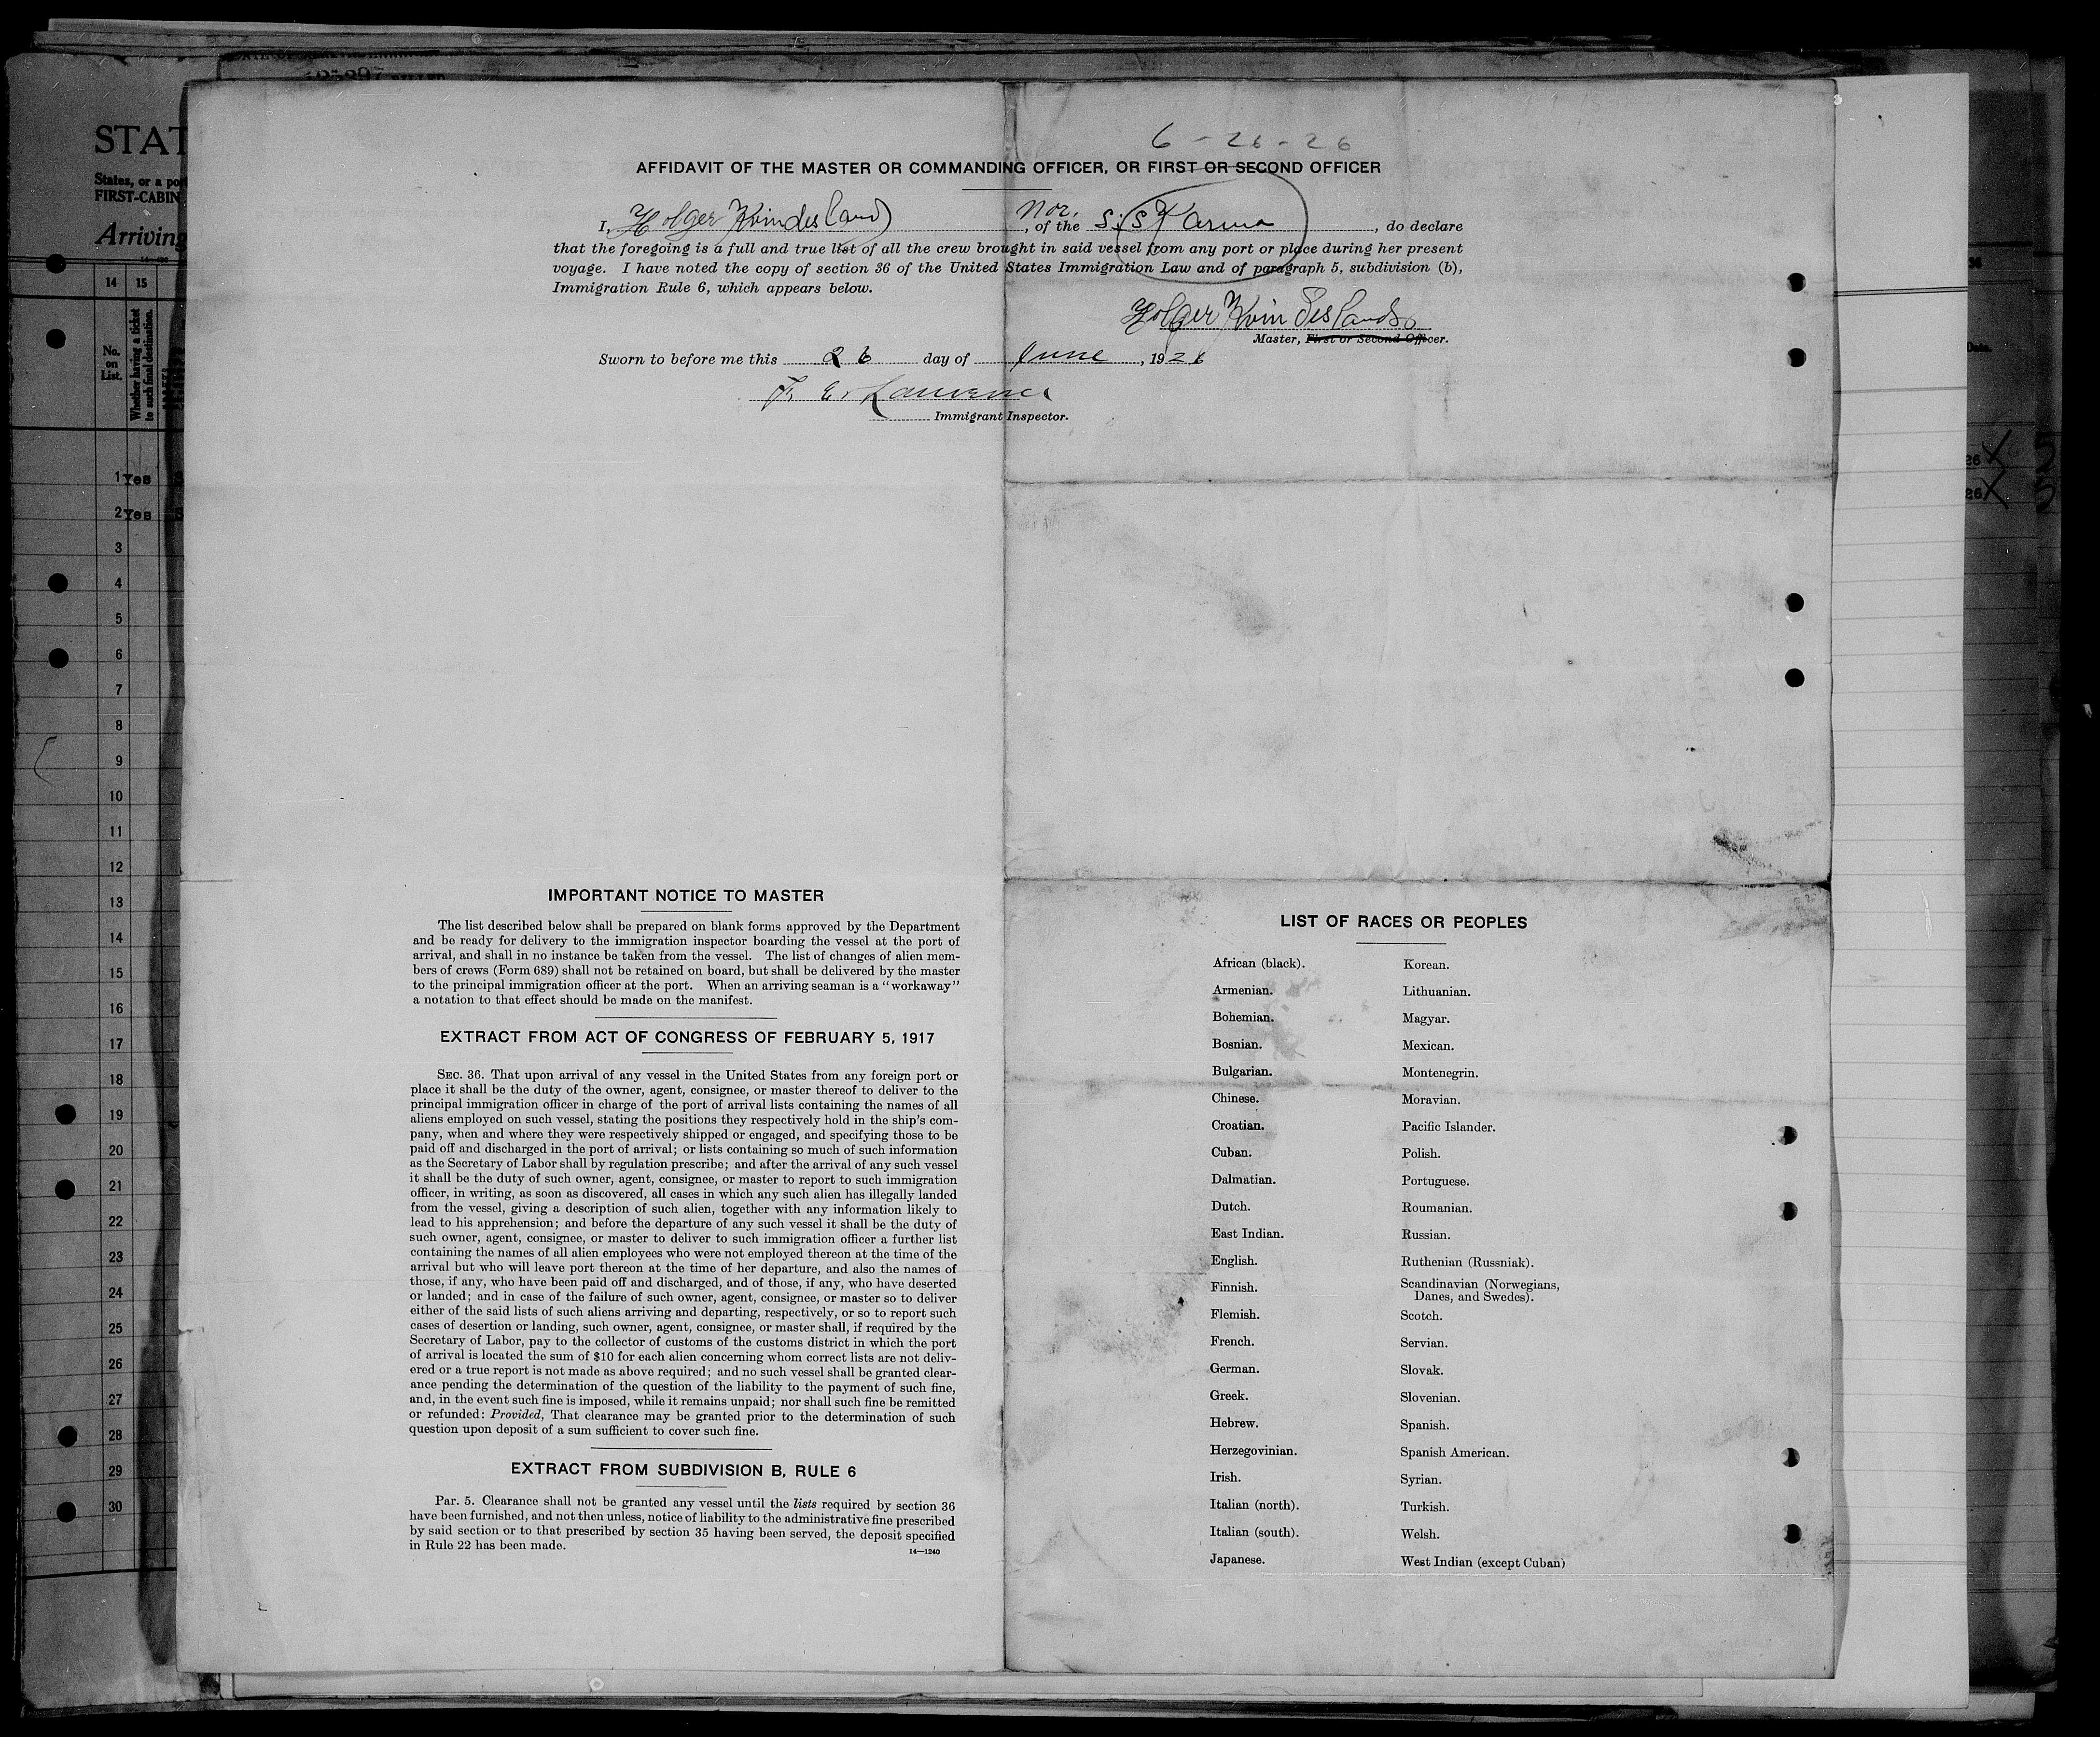 STAT
States, or a por
FIRST-CABIN
Arriving
14 15
No. on List.
Whether having a ticket to such final destination.
1 Yes
2 Yes
3
4
5
6
7
8
9
10
11
12
13
14
15
16
17
18
19
20
21
22
23
24
25
26
27
28
29
30
6-26-26
AFFIDAVIT OF THE MASTER OR COMMANDING OFFICER, OR FIRST OR SECOND OFFICER
Nor.
I, Holger Kvindesland, of the S.S. Karma, do declare
that the foregoing is a full and true list of all the crew brought in said vessel from any port or place during her present
voyage. I have noted the copy of section 36 of the United States Immigration Law and of paragraph 5, subdivision (b),
Immigration Rule 6, which appears below.
Holger Kvindesland
Master, First or Second Officer.
Sworn to before me this 26 day of June, 1926
F. E. Lawrence
Immigrant Inspector.
IMPORTANT NOTICE TO MASTER
The list described below shall be prepared on blank forms approved by the Department
and be ready for delivery to the immigration inspector boarding the vessel at the port of
arrival, and shall in no instance be taken from the vessel. The list of changes of alien mem-
bers of crews (Form 689) shall not be retained on board, but shall be delivered by the master
to the principal immigration officer at the port. When an arriving seaman is a "workaway"
a notation to that effect should be made on the manifest.
EXTRACT FROM ACT OF CONGRESS OF FEBRUARY 5, 1917
SEC. 36. That upon arrival of any vessel in the United States from any foreign port or
place it shall be the duty of the owner, agent, consignee, or master thereof to deliver to the
principal immigration officer in charge of the port of arrival lists containing the names of all
aliens employed on such vessel, stating the positions they respectively hold in the ship's com-
pany, when and where they were respectively shipped or engaged, and specifying those to be
paid off and discharged in the port of arrival; or lists containing so much of such information
as the Secretary of Labor shall by regulation prescribe; and after the arrival of any such vessel
it shall be the duty of such owner, agent, consignee, or master to report to such immigration
officer, in writing, as soon as discovered, all cases in which any such alien has illegally landed
from the vessel, giving a description of such alien, together with any information likely to
lead to his apprehension; and before the departure of any such vessel it shall be the duty of
such owner, agent, consignee, or master to deliver to such immigration officer a further list
containing the names of all alien employees who were not employed thereon at the time of the
arrival but who will leave port thereon at the time of her departure, and also the names of
those, if any, who have been paid off and discharged, and of those, if any, who have deserted
or landed; and in case of the failure of such owner, agent, consignee, or master so to deliver
either of the said lists of such aliens arriving and departing, respectively, or so to report such
cases of desertion or landing, such owner, agent, consignee, or master shall, if required by the
Secretary of Labor, pay to the collector of customs of the customs district in which the port
of arrival is located the sum of $10 for each alien concerning whom correct lists are not deliv-
ered or a true report is not made as above required; and no such vessel shall be granted clear-
ance pending the determination of the question of the liability to the payment of such fine,
and, in the event such fine is imposed, while it remains unpaid; nor shall such fine be remitted
or refunded: Provided, That clearance may be granted prior to the determination of such
question upon deposit of a sum sufficient to cover such fine.
EXTRACT FROM SUBDIVISION B, RULE 6
Par. 5. Clearance shall not be granted any vessel until the lists required by section 36
have been furnished, and not then unless, notice of liability to the administrative fine prescribed
by said section or to that prescribed by section 35 having been served, the deposit specified
in Rule 22 has been made.
14—1240
LIST OF RACES OR PEOPLES
African (black).
Armenian.
Bohemian.
Bosnian.
Bulgarian.
Chinese.
Croatian.
Cuban.
Dalmatian.
Dutch.
East Indian.
English.
Finnish.
Flemish.
French.
German.
Greek.
Hebrew.
Herzegovinian.
Irish.
Italian (north).
Italian (south).
Japanese.
Korean.
Lithuanian.
Magyar.
Mexican.
Montenegrin.
Moravian.
Pacific Islander.
Polish.
Portuguese.
Roumanian.
Russian.
Ruthenian (Russniak).
Scandinavian (Norwegians,
Danes, and Swedes).
Scotch.
Servian.
Slovak.
Slovenian.
Spanish.
Spanish American.
Syrian.
Turkish.
Welsh.
West Indian (except Cuban)